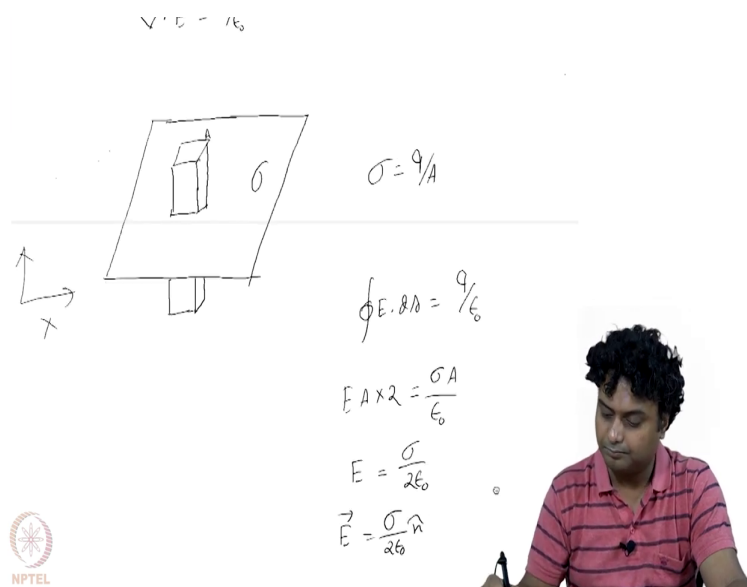 σ
σ = q/A
X
∮E.ds = q/ε₀
E A × 2 = σA/ε₀
E = σ/2ε₀
E⃗ = σ/2ε₀ n̂
NPTEL